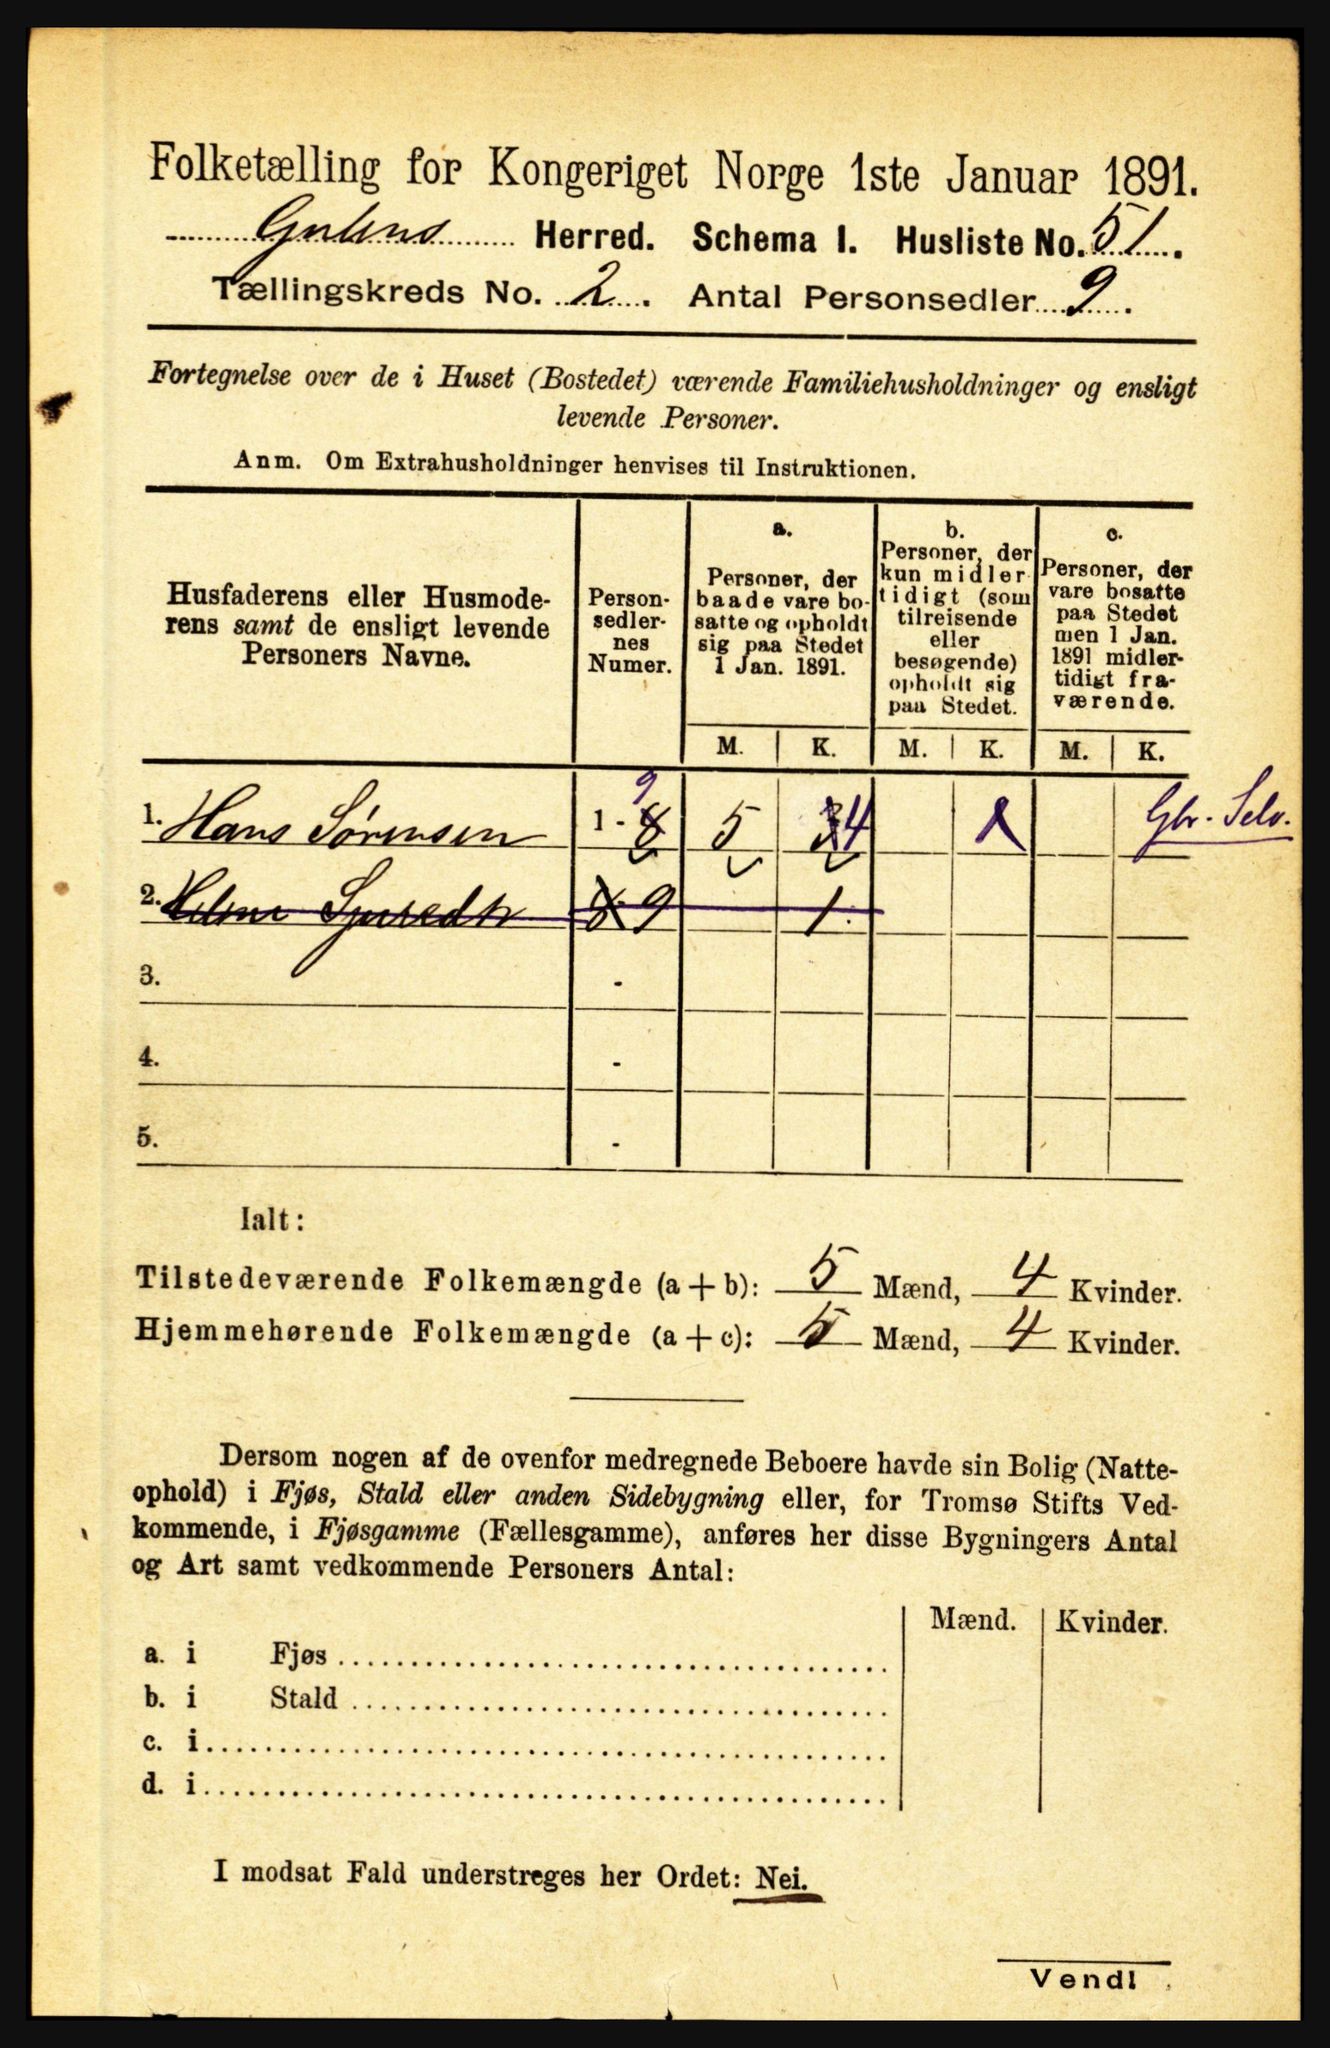 Folketælling for Kongeriget Norge 1ste Januar 1891.
Gulens Herred. Schema I. Husliste No. 51.
Tællingskreds No. 2. Antal Personsedler 9.
Fortegnelse over de i Huset (Bostedet) værende Familiehusholdninger og ensligt
levende Personer.
Anm. Om Extrahusholdninger henvises til Instruktionen.
Husfaderens eller Husmode-
rens samt de ensligt levende
Personers Navne.
Person-
sedler-
nes
Numer.
a.
Personer, der
baade vare bo-
satte og opholdt
sig paa Stedet
1 Jan. 1891.
b.
Personer, der
kun midler-
tidigt (som
tilreisende
eller
besøgende)
opholdt sig
paa Stedet.
c.
Personer, der
vare bosatte
paa Stedet
men 1 Jan.
1891 midler-
tidigt fra-
værende.
M. K. M. K. M. K.
9
1. Hans Sørensen 1 - 8 5 3 4 Gbr. Selv.
2. Sjuredtr 8 9 1.
3. -
4. -
5. -
Ialt:
Tilstedeværende Folkemængde (a + b): 5 Mænd, 4 Kvinder.
Hjemmehørende Folkemængde (a + c): 5 Mænd, 4 Kvinder.
Dersom nogen af de ovenfor medregnede Beboere havde sin Bolig (Natte-
ophold) i Fjøs, Stald eller anden Sidebygning eller, for Tromsø Stifts Ved-
kommende, i Fjøsgamme (Fællesgamme), anføres her disse Bygningers Antal
og Art samt vedkommende Personers Antal:
Mænd. Kvinder.
a. i Fjøs
b. i Stald
c. i
d. i
I modsat Fald understreges her Ordet: Nei.
Vend!